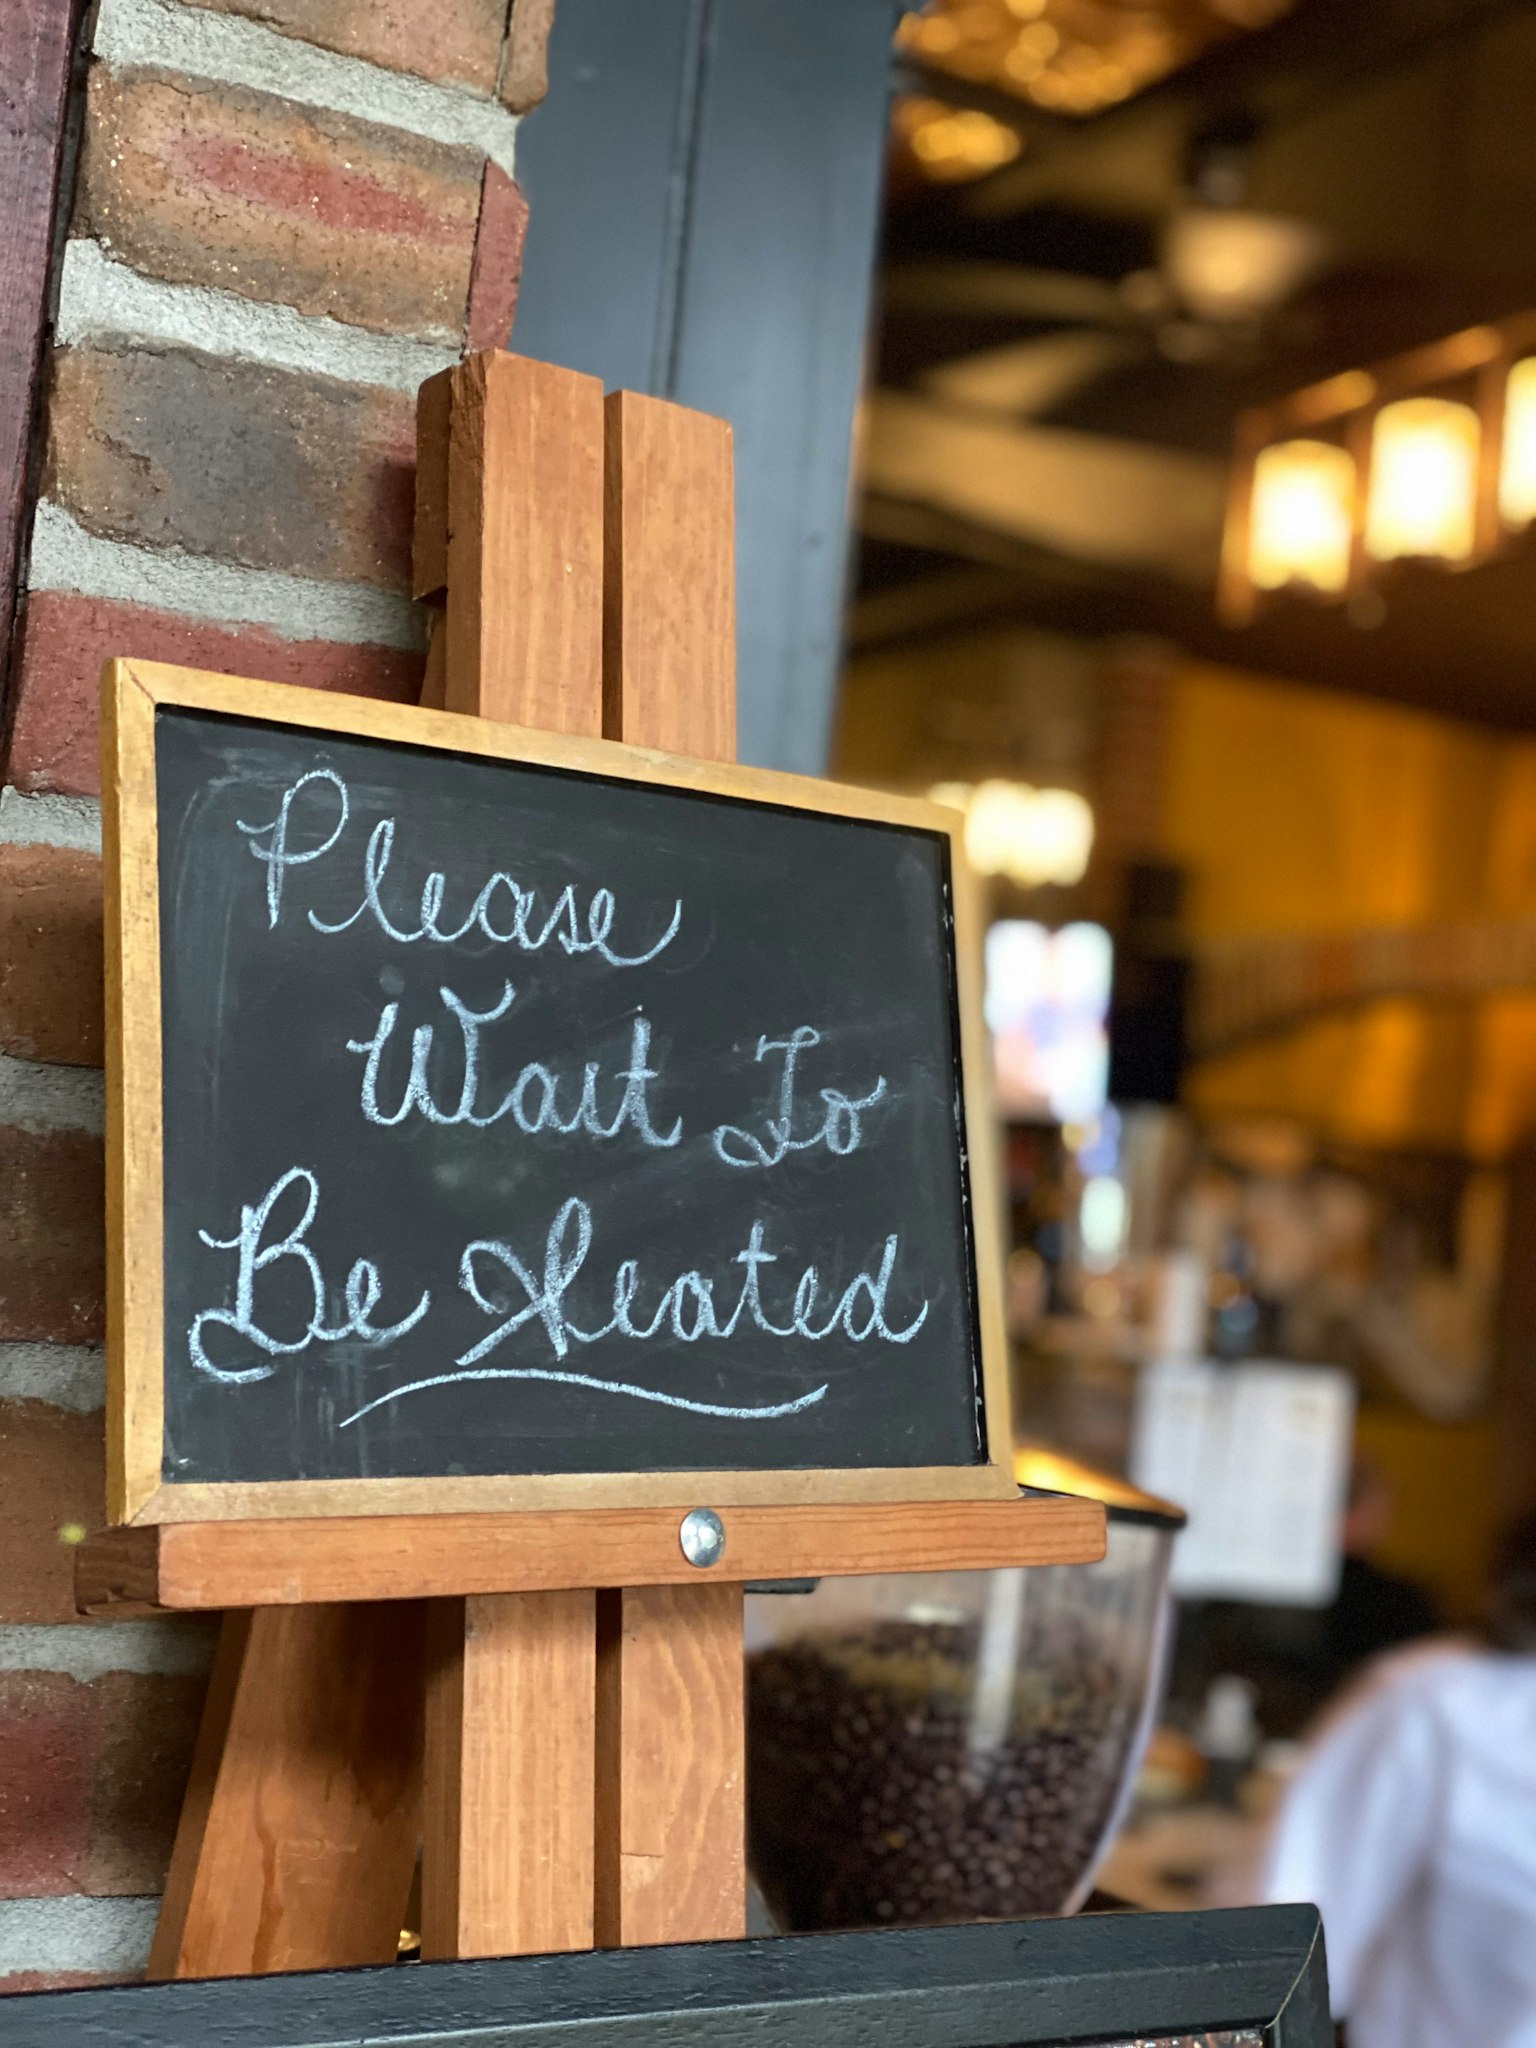 Please
Wait To
Be Seated